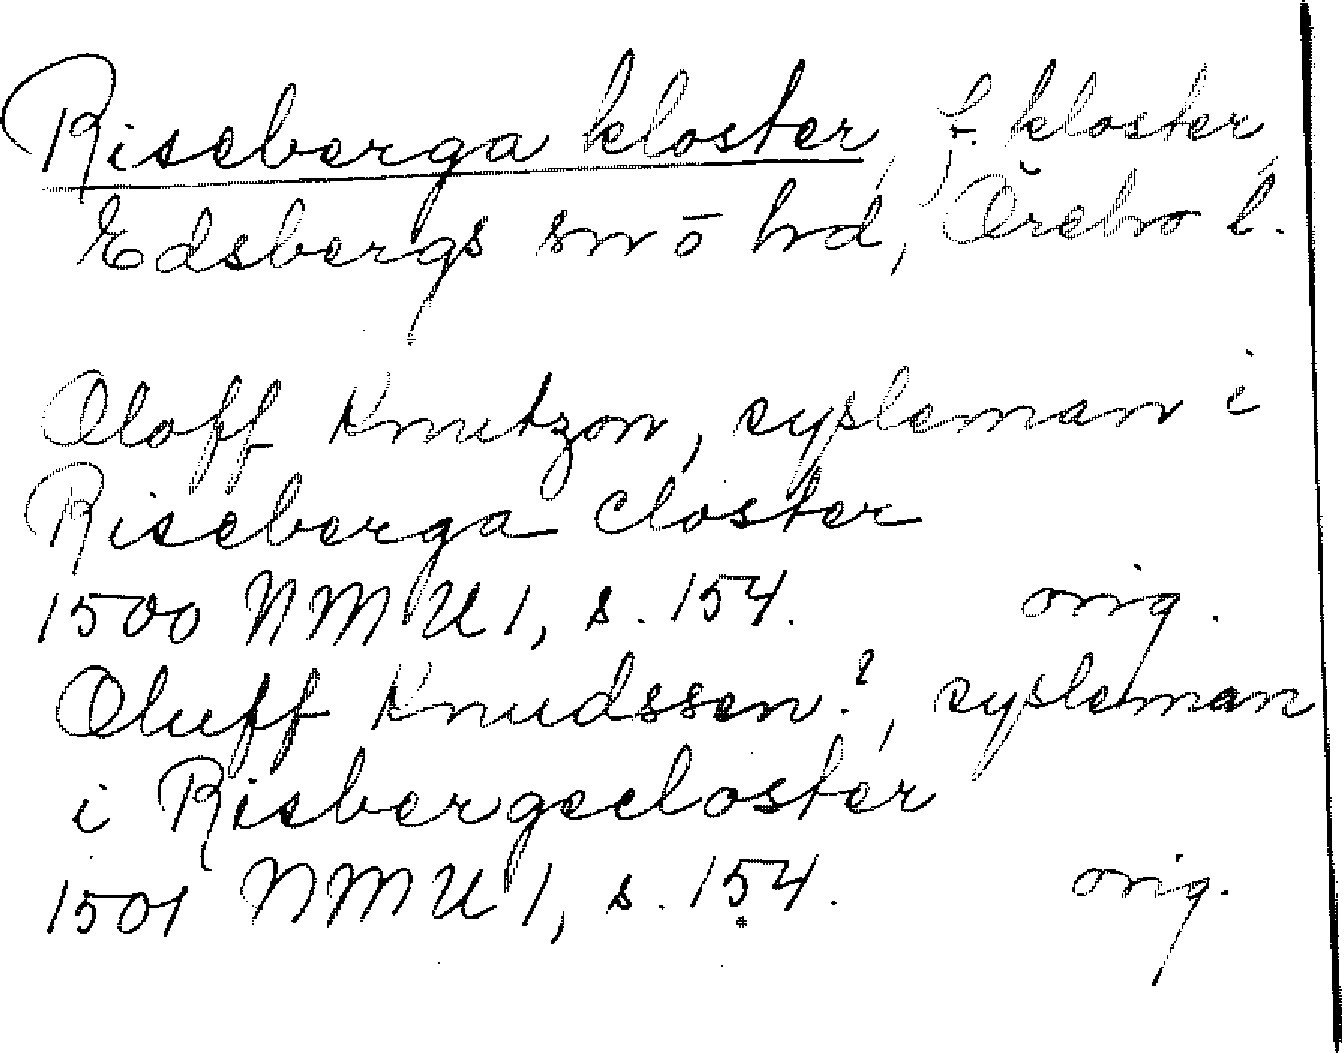 Riseberga kloster, f. kloster,
Edsbergs sn o hd, Örebro l.
Oloff Knutzon, sysleman i
Riseberga closter
1500 NMU 1, s. 154. orig.
Oluff Knudssen?, sysleman
i Risbergecloster
1501 NMU 1, s. 154. orig.